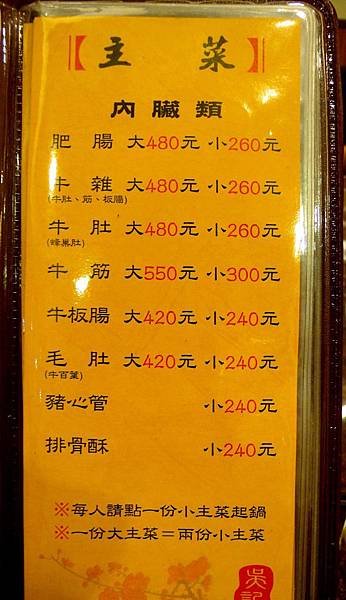 【主 菜】
內臟類
肥腸 大480元 小260元
牛雜 大480元 小260元
(牛肚、筋、板腸)
牛肚 大480元 小260元
(蜂巢肚)
牛筋 大550元 小300元
牛板腸 大420元 小240元
毛肚 大420元 小240元
(牛百葉)
豬心管 小240元
排骨酥 小240元
※每人請點一份小主菜起鍋
※一份大主菜=兩份小主菜
吳記